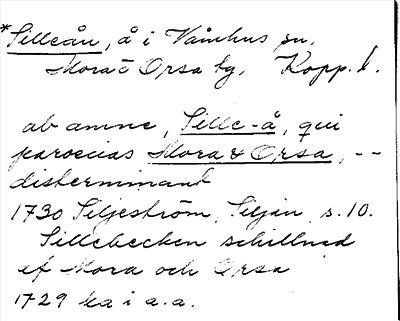 *Silleån, å i Våmhus sn,
Mora o Orsa tg, Kopp. l.
ab amne, Sille-å, qui
paroecias Mora & Orsa, --
disterminant
1730 Siljeström, Siljan, s. 10.
Sillebecken schillnad
ef Mora och Orsa
1729 ka i a.a.